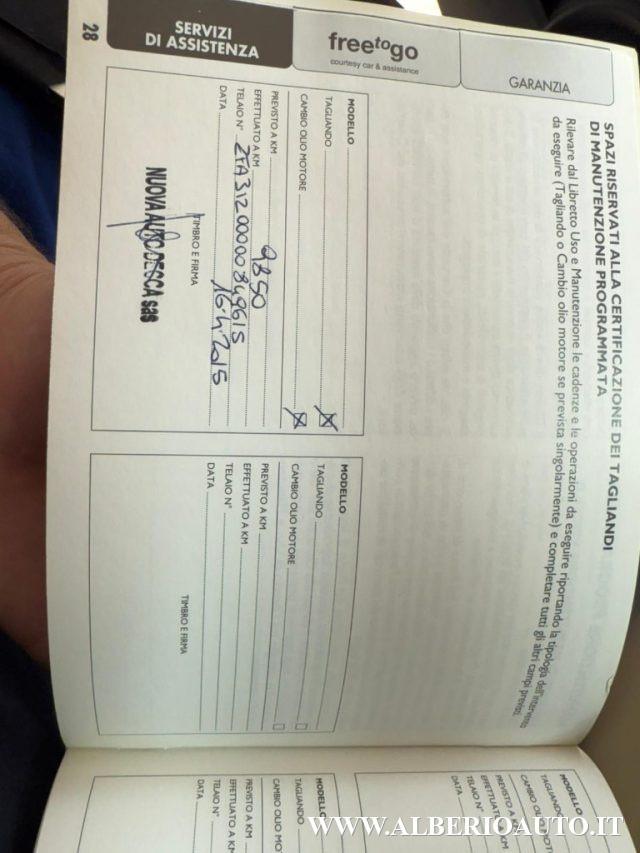 SERVIZI
DI ASSISTENZA
freetogo
courtesy car & assistance
GARANZIA
28
SPAZI RISERVATI ALLA CERTIFICAZIONE DEI TAGLIANDI
DI MANUTENZIONE PROGRAMMATA
Rilevare dal Libretto Uso e Manutenzione le cadenze e le operazioni da eseguire riportando la tipologia dell'intervento
da eseguire (Tagliando o Cambio olio motore se prevista singolarmente) e completare tutti gli altri campi previsti
MODELLO
TAGLIANDO
CAMBIO OLIO MOTORE
PREVISTO A KM
EFFETTUATO A KM 9850
TELAIO N°
DATA 16.4.2015
TIMBRO E FIRMA
NUOVA AUTO DESCA sas
MODELLO
TAGLIANDO
CAMBIO OLIO MOTORE
PREVISTO A KM
EFFETTUATO A KM
TELAIO N°
DATA
TIMBRO E FIRMA
MODELLO
TAGLIANDO
CAMBIO OLIO MOT
PREVISTO A KM
EFFETTUATO A KM
TELAIO N°
DATA
MODELLO
TAGLIANDO
CAMBIO OLIO
PREVISTO A KM
EFFETTUATO A
TELAIO N°
DATA
WWW.ALBERIOAUTO.IT